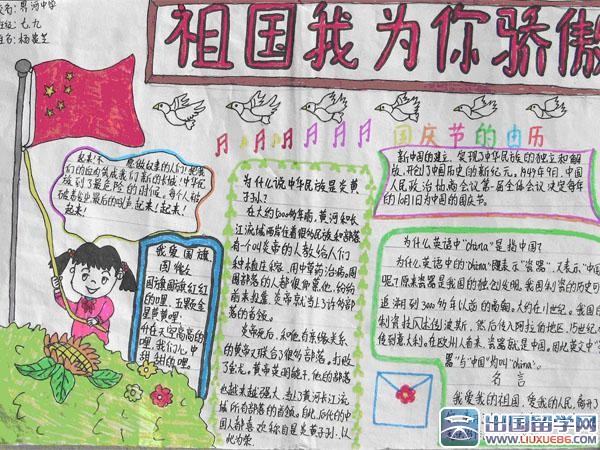 校名:界河中学
班级:七.九
祖国我为你骄傲
国庆节的由历
起来!不愿做奴隶的人们!把我
们的血肉筑成我们新的长城!中华民
族到了最危险的时候。每个人被
迫着发出最后的吼声。起来!起来!
起来!
我爱国旗
国旗国旗红红
的哩,五颗金星
黄黄哩。
升在天空高高的
哩,我们心中
甜甜的哩。
为什么说中华民族是炎黄
子孙?
江流域两岸住着很多民族和部落
有一个叫炎帝的人教给人们
种植庄稼,用中草药治病。周
围部落的人都很仰慕他,纷纷
前来投靠,炎帝就当上了许多部落
的首领。
炎帝死后,和他有亲缘关系
的黄帝又联合了很多部落,打败
了蚩尤。黄帝英明能干,他的部落
也越来越强大,当了黄河长江流
域所有部落的首领。自此,后代的中
国人都喜欢称自己是炎黄子孙,以
此为荣。
新中国的建立,实现了中华民族的独立和解
放,开创了中国历史的新纪元。1949年9月,中国
人民政治协商会议第一届全体会议决定每年
的10月1日为中国的国庆节。
为什么英语中"china"是指中国?
为什么英语中的"china"既表示"瓷器",又表示"中国
呢?原来瓷器是我国的独创发明,我国制瓷的历史可
追溯到3000多年以前的商朝。大约在八世纪,我国的
传到意大利。在欧洲人看来,瓷器就是中国。因此英文中"瓷
器"与"中国"均叫"china"。
名言
我爱我的祖国,爱我的人民,离开了
出国留学网
www.liuxue86.com